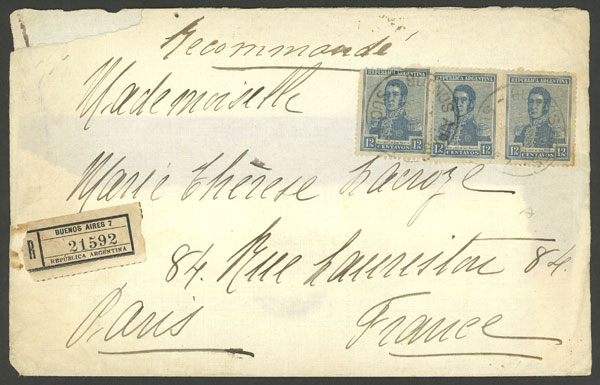 Recommandé
Mademoiselle
REPUBLICA ARGENTINA
12 CENTAVOS 12
REPUBLICA ARGENTINA
12 CENTAVOS 12
12 CENTAVOS 12
Marie Thérèse Larroze
BUENOS AIRES 7
R 21592
REPÚBLICA ARGENTINA
84. Rue Lauriston 84.
Paris France